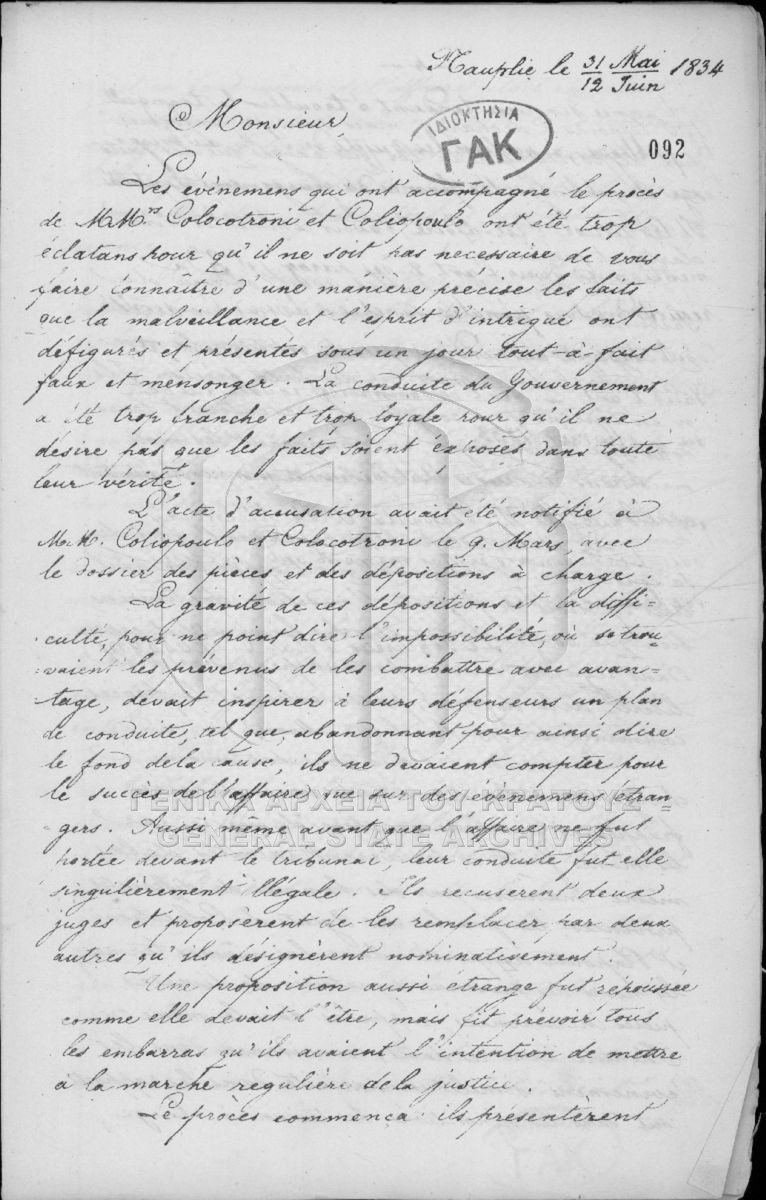 Nauplie le 31/12 Mai/Juin 1834
Monsieur,
ΙΔΙΟΚΤΗΣΙΑ
ΓΑΚ
092
Les évènemens qui ont accompagné le procès
de M.Mrs Colocotroni et Coliopoulo ont été trop
éclatans pour qu'il ne soit pas necessaire de vous
faire connaître d'une manière précise les faits
que la malveillance et l'esprit d'intrigue ont
défigurés et présentés sous un jour tout-à-fait
faux et mensonger. La conduite du Gouvernement
a été trop franche et trop loyale pour qu'il ne
désire pas que les faits soient éxposés dans toute
leur vérité.
L'acte d'accusation avait été notifié à
M.M. Coliopoulo et Colocotroni le 9. Mars, avec
le dossier des pièces et des dépositions à charge.
La gravité de ces dépositions et la diffi-
culté, pour ne point dire l'impossibilité, où se trou-
vaient les prévenus de les combattre avec avan-
tage, devait inspirer à leurs défenseurs un plan
de conduite, tel que, abandonnant pour ainsi dire
le fond de la cause, ils ne devaient compter pour
le succès de l'affaire que sur des évènemens étran-
gers. Aussi même avant que l'affaire ne fut
portée devant le tribunal, leur conduite fut elle
singulièrement illégale. Ils recuserent deux
juges et proposèrent de les remplacer par deux
autres qu'ils désignèrent nominativement.
Une proposition aussi étrange fut répoussée
comme elle devait l'être, mais fit prévoir tous
les embarras qu'ils avaient l'intention de mettre
à la marche regulière de la justice.
Le procès commença: ils présentèrent
ΓΕΝΙΚΑ ΑΡΧΕΙΑ ΤΟΥ ΚΡΑΤΟΥΣ
GENERAL STATE ARCHIVES